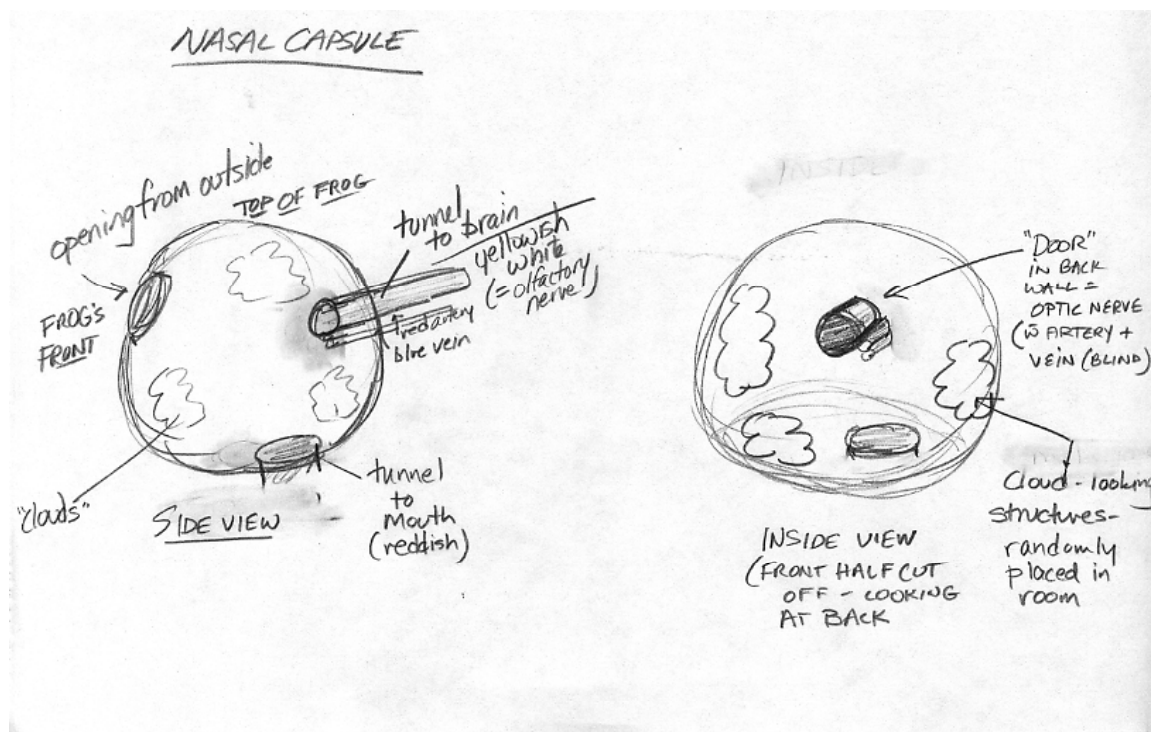 NASAL CAPSULE
opening from outside
TOP OF FROG
FROG'S
FRONT
tunnel
to brain
yellowish
white
(= olfactory
nerve)
red artery
blue vein
"clouds"
SIDE VIEW
tunnel
to
mouth
(reddish)
INSIDE
"DOOR"
IN BACK
WALL =
OPTIC NERVE
(w̄ ARTERY +
VEIN (BLIND)
Cloud-looking
structures-
randomly
placed in
room
INSIDE VIEW
(FRONT HALF CUT
OFF - LOOKING
AT BACK